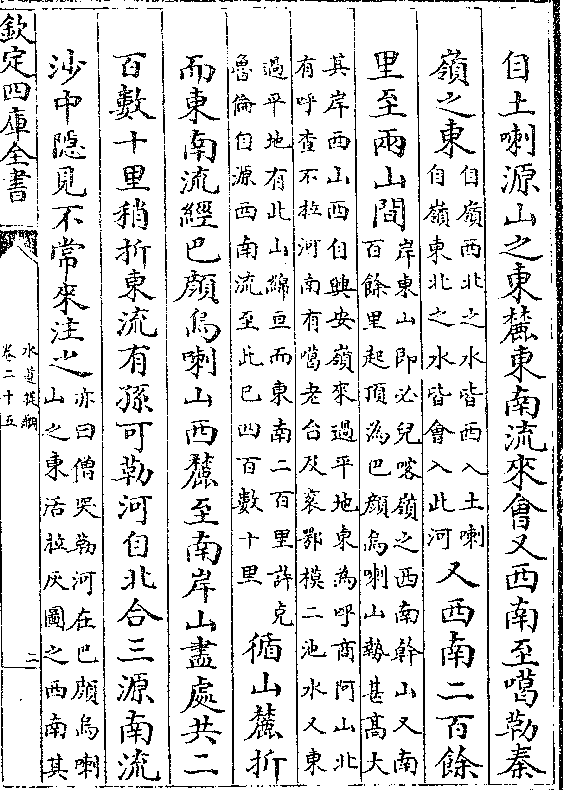 自土喇源山之東麓東南流來會又西南至噶勒秦
嶺之東自嶺西北之水皆西入土喇
自嶺東北之水皆會入此河又西南二百餘
里至兩山間岸東山即必兒喀嶺之西南幹山又南
百餘里起頂為巴顔烏喇山勢甚髙大
其岸西山西自興安嶺來過平地東為呼商阿山北
有呼查不拉河南有噶老台及衮鄂模二池水又東
過平地有此山綿亘而東南二百里許克
魯倫自源西南流至此已四百數十里循山麓折
而東南流經巴顔烏喇山西麓至南岸山盡處共二
百數十里稍折東流有孫可勒河自北合三源南流
沙中隠見不常來注之亦曰僧哭勒河在巴顔烏喇
山之東活拉灰圖之西南其
欽定四庫全書
水道提綱
卷二十五
二